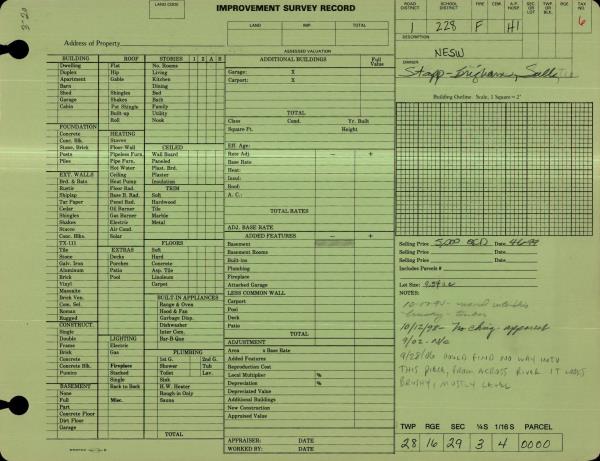 LAND CODE
IMPROVEMENT SURVEY RECORD
LAND IMP. TOTAL
ASSESSED VALUATION
Address of Property
ROAD DISTRICT SCHOOL DISTRICT FIRE CEM. A.P. HOSP. SEC OR LOT TWP OR BLK. RGE. TAX NO.
1 228 F H1 6
DESCRIPTION
NESW
OWNER
BUILDING ROOF STORIES 1 2 A S
Dwelling Flat No. Rooms
Duplex Hip Living
Apartment Gable Kitchen
Barn Dining
Shed Shingles Bed
Garage Shakes Bath
Cabin Pat Shingle Family
Built-up Utility
Roll Nook
FOUNDATION
Concrete HEATING
Conc. Blk. Stoves CEILED
Stone, Brick Floor-Wall Wall Board
Posts Pipeless Furn. Paneled
Piles Pipe Furn. Plast. Brd.
Hot Water Plaster
EXT. WALLS Ceiling Insulation
Brd. & Bats Heat Pump TRIM
Rustic Floor Rad. Soft
Shiplap Base B. Rad. Hardwood
Tar Paper Panel Rad. Tile
Cedar Oil Burner Marble
Shingles Gas Burner Metal
Shakes Electric
Stucco Air Cond.
Conc. Blks. Solar
TX-111 FLOORS
Tile EXTRAS Soft
Stone Decks Hard
Galv. Iron Porches Concrete
Aluminum Patio Asp. Tile
Brick Pool Linoleum
Vinyl Carpet
Masonite
Brick Ven. BUILT-IN APPLIANCES
Com. Sel. Range & Oven
Roman Hood & Fan
Rugged Garbage Disp.
CONSTRUCT. Dishwasher
Single Inter Com.
Double LIGHTING Bar-B-Que
Frame Electric
Brick Gas PLUMBING
Concrete 1st G. 2nd G.
Concrete Blk. Fireplace Shower Tub
Pumice Stacked Toilet Lav.
Single Sink
BASEMENT Back to Back H.W. Heater
None Rough-in Only
Full Misc. Sauna
Part
Concrete Floor
Dirt Floor
Garage
TOTAL
ADDITIONAL BUILDINGS Full Value
Garage: X
Carport: X
TOTAL
Class Cond. Yr. Built
Square Ft. Height
Eff. Age:
Rate Adj. - +
Base Rate
Heat:
Insul:
Roof:
A. C.:
TOTAL RATES
ADJ. BASE RATE
ADDED FEATURES - +
Basement
Basement Rooms
Built-ins
Plumbing
Fireplace
Attached Garage
LESS COMMON WALL
Carport
Pool
Deck
Patio
TOTAL
ADJUSTMENT
Area x Base Rate
Added Features
Reproduction Cost
Local Multiplier %
Depreciation %
Depreciated Value
Additional Buildings
New Construction
Appraised Value
APPRAISER: DATE
WORKED BY: DATE
Building Outline. Scale, 1 Square = 2'
Selling Price 5,000 Date
Selling Price Date
Selling Price Date
Includes Parcels #
Lot Size:
NOTES:
10/12/98- No chng - apparent
9/02 - N/C
9/28/06 COULD FIND NO WAY INTO
THIS PIECE, FROM ACROSS RIVER IT LOOKS
BRUSHY, MOSTLY LEVEL
TWP RGE SEC ¼S 1/16 S PARCEL
28 16 29 3 4 0000